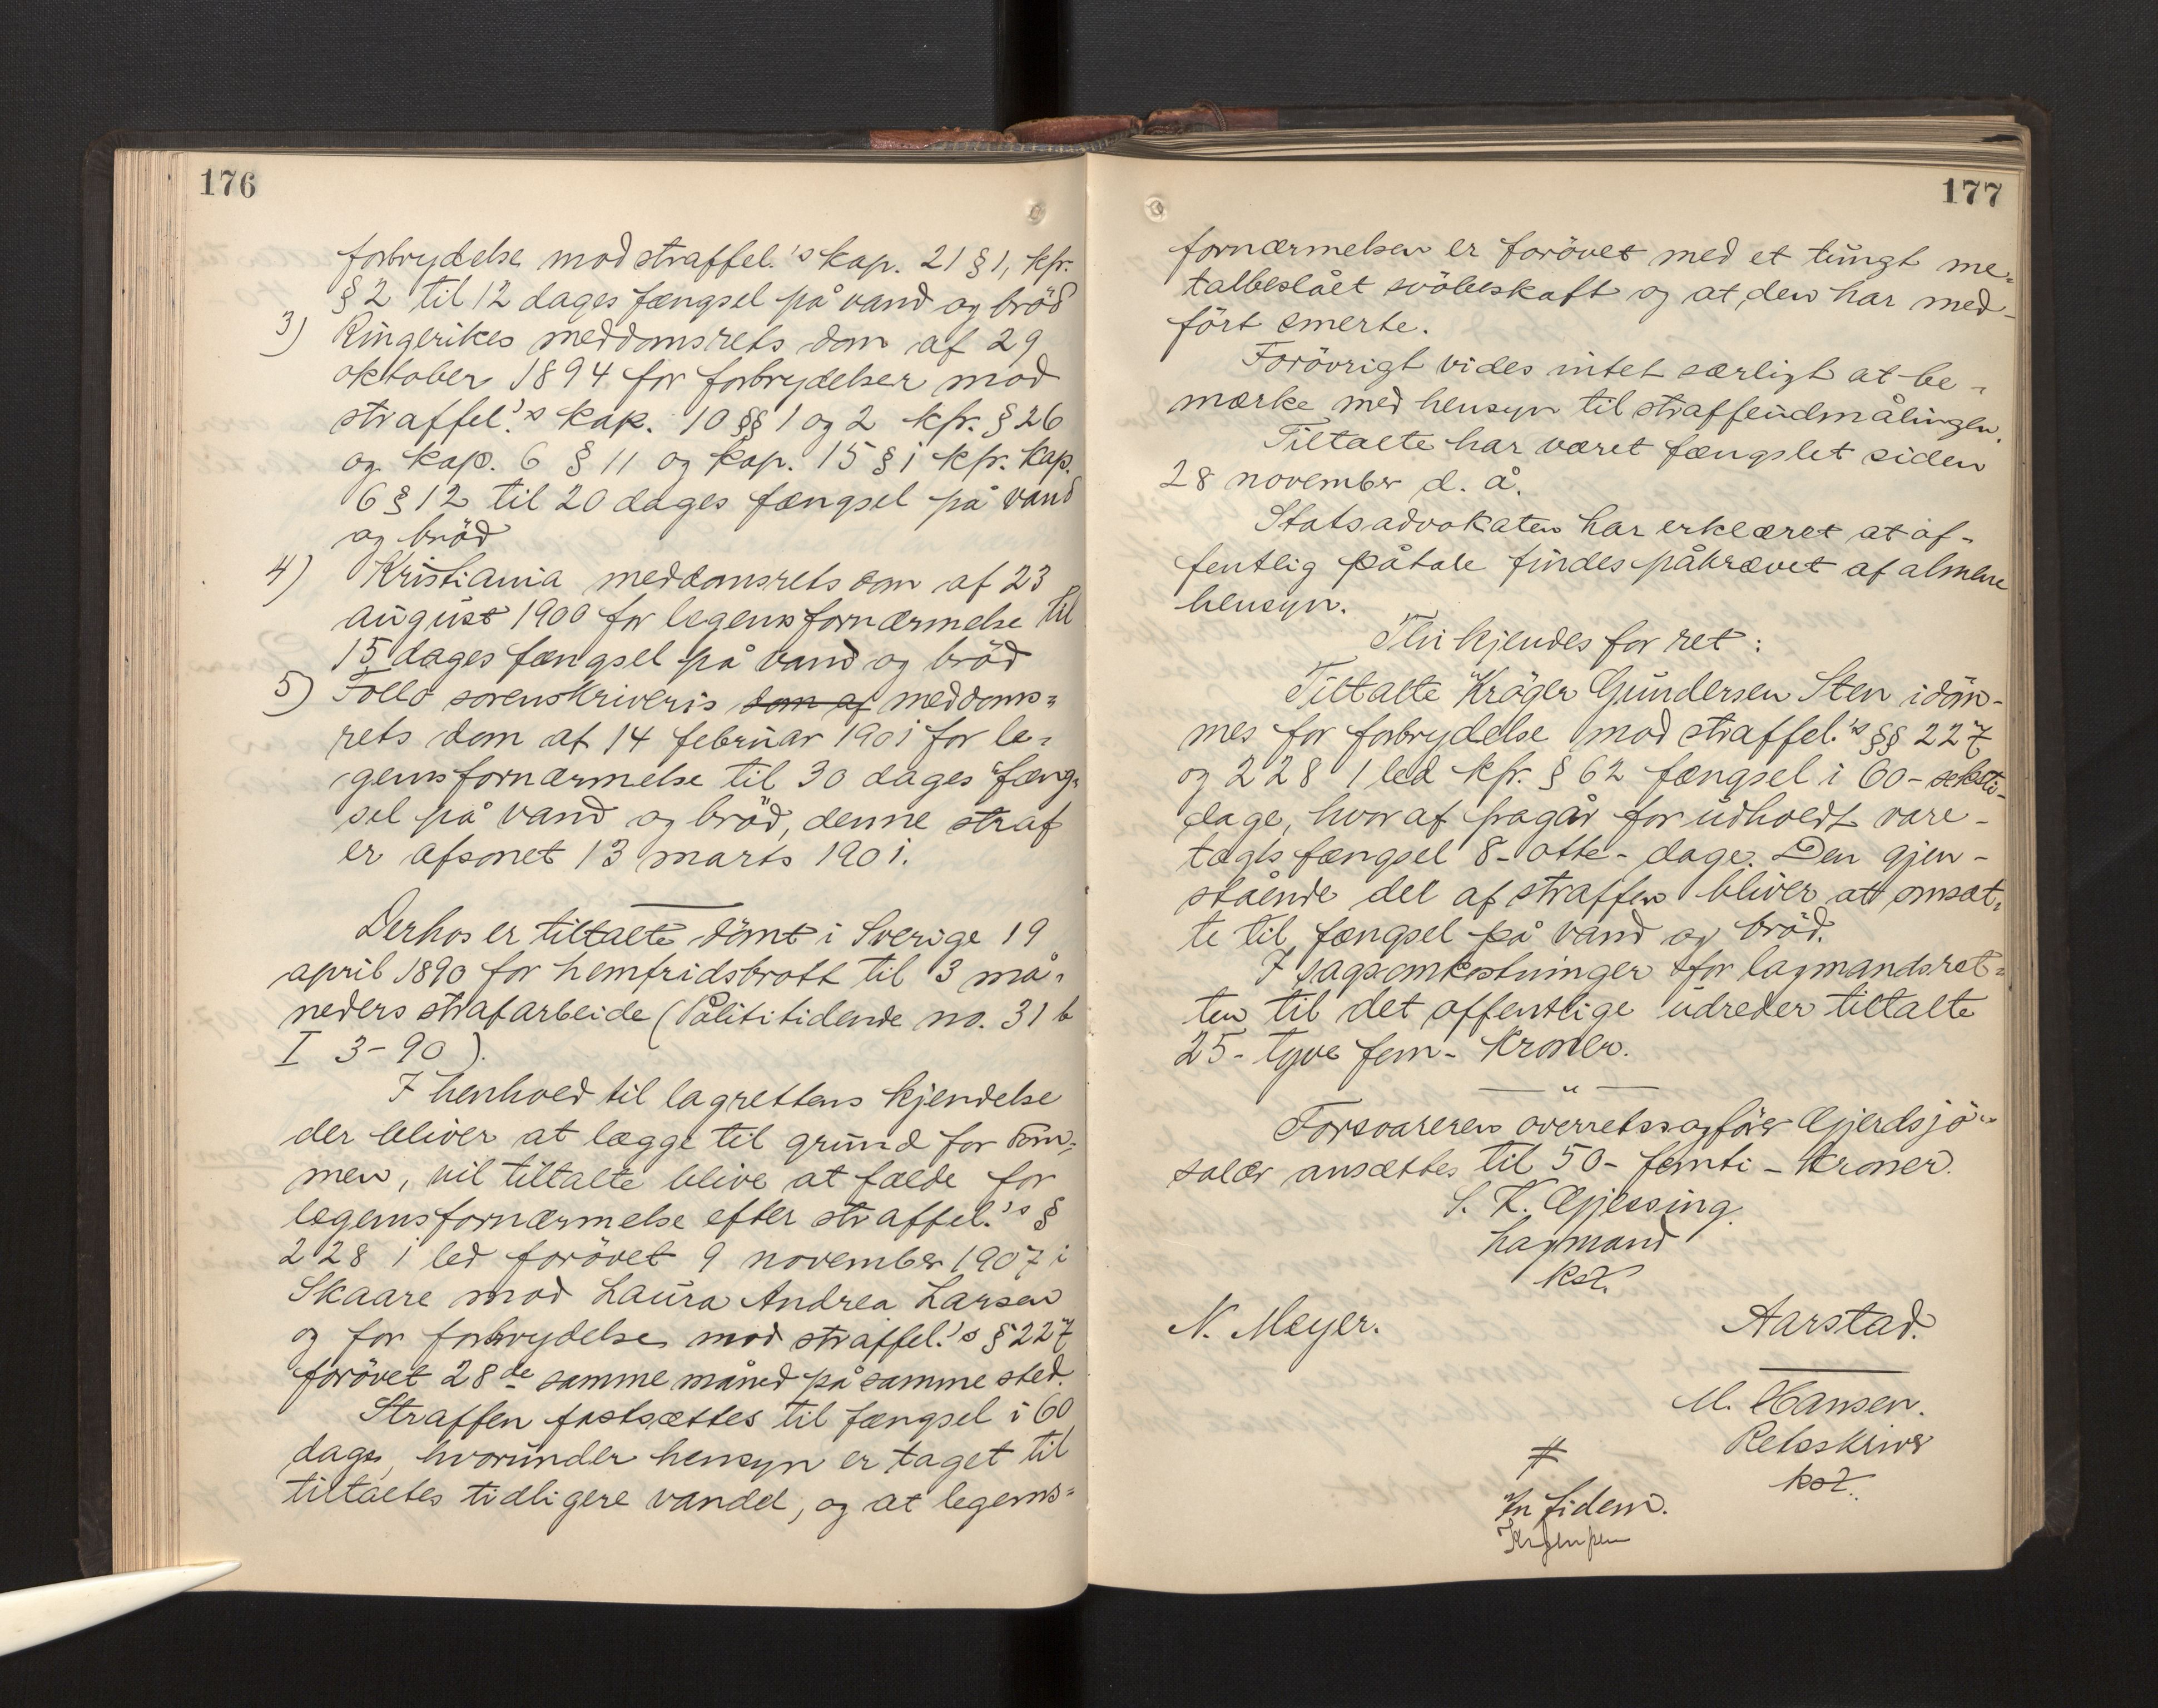 176
forbrydelse mod straffel.'s kap. 21 § 1, kfr.
§ 2 til 12 dages fængsel på vand og bröd
3) Ringerikes meddomsrets dom af 29
oktober 1894 for forbrydelser mod
straffel.'s kap. 10 §§ 1 og 2 kfr. § 26
og kap. 6 § 11 og kap. 15 § 1 kfr. kap.
6 § 12 til 20 dages fængsel på vand
og bröd
4) Kristiania meddomsrets dom af 23
august 1900 for legemsfornærmelse til
15 dages fængsel på vand og bröd
5) Follo sorenskriveris dom af meddoms=
rets dom af 14 februar 1901 for le=
gemsfornærmelse til 30 dages fæng=
sel på vand og bröd, denne straf
er afsonet 13 marts 1901.
Derhos er tiltalte dömt i Sverige 19
april 1890 for hemfridsbrott til 3 må=
neders strafarbeide (Politidende no. 31 b
I 3-90).
I henhold til lagrettens kjendelse
der bliver at lægge til grund for dom=
men, vil tiltalte blive at fælde for
legemsfornærmelse efter straffel.'s §
228 1 led forövet 9 november 1907 i
Skaare mod Laura Andrea Larsen
og for forbrydelse mod straffel.'s § 227
forövet 28de samme måned på samme sted.
Straffen fastsættes til fængsel i 60
dage, hvorunder hensyn er taget til
tiltaltes tidligere vandel, og at legems=
177
fornærmelsen er forövet med et tungt me=
talbeslået svöbeskaft og at den har med-
fört smerte.
Forövrigt vides intet særligt at be-
mærke med hensyn til straffeudmålingen.
Tiltalte har været fængslet siden
28 november d. å.
Statsadvokaten har erklæret at of-
fentlig påtale findes påkrævet af almene
hensyn.
Thi kjendes for ret:
Tiltalte Kröger Gundersen Sten idöm-
mes for forbrydelse mod straffel.'s §§ 227
og 228 1 led kfr. § 62 fængsel i 60- seksti-
dage, hvoraf fragår for udholdt vare-
tægts fængsel 8- otte- dage. Den gjen-
stående del af straffen bliver at omsæt=
te til fængsel på vand og bröd.
I sagsomkostninger for lagmandsret=
ten til det offentlige udreder tiltalte
25- tyve fem- Kroner.
— " —
Forsvareren overretssagförer Gjerdsjö's
salær ansættes til 50- femti- Kroner.
S. K. Gjessing.
Lagmand
kst.
N. Meyer. Aarstad.
M. Hansen.
Retsskriver
kst.
#
In fidem.